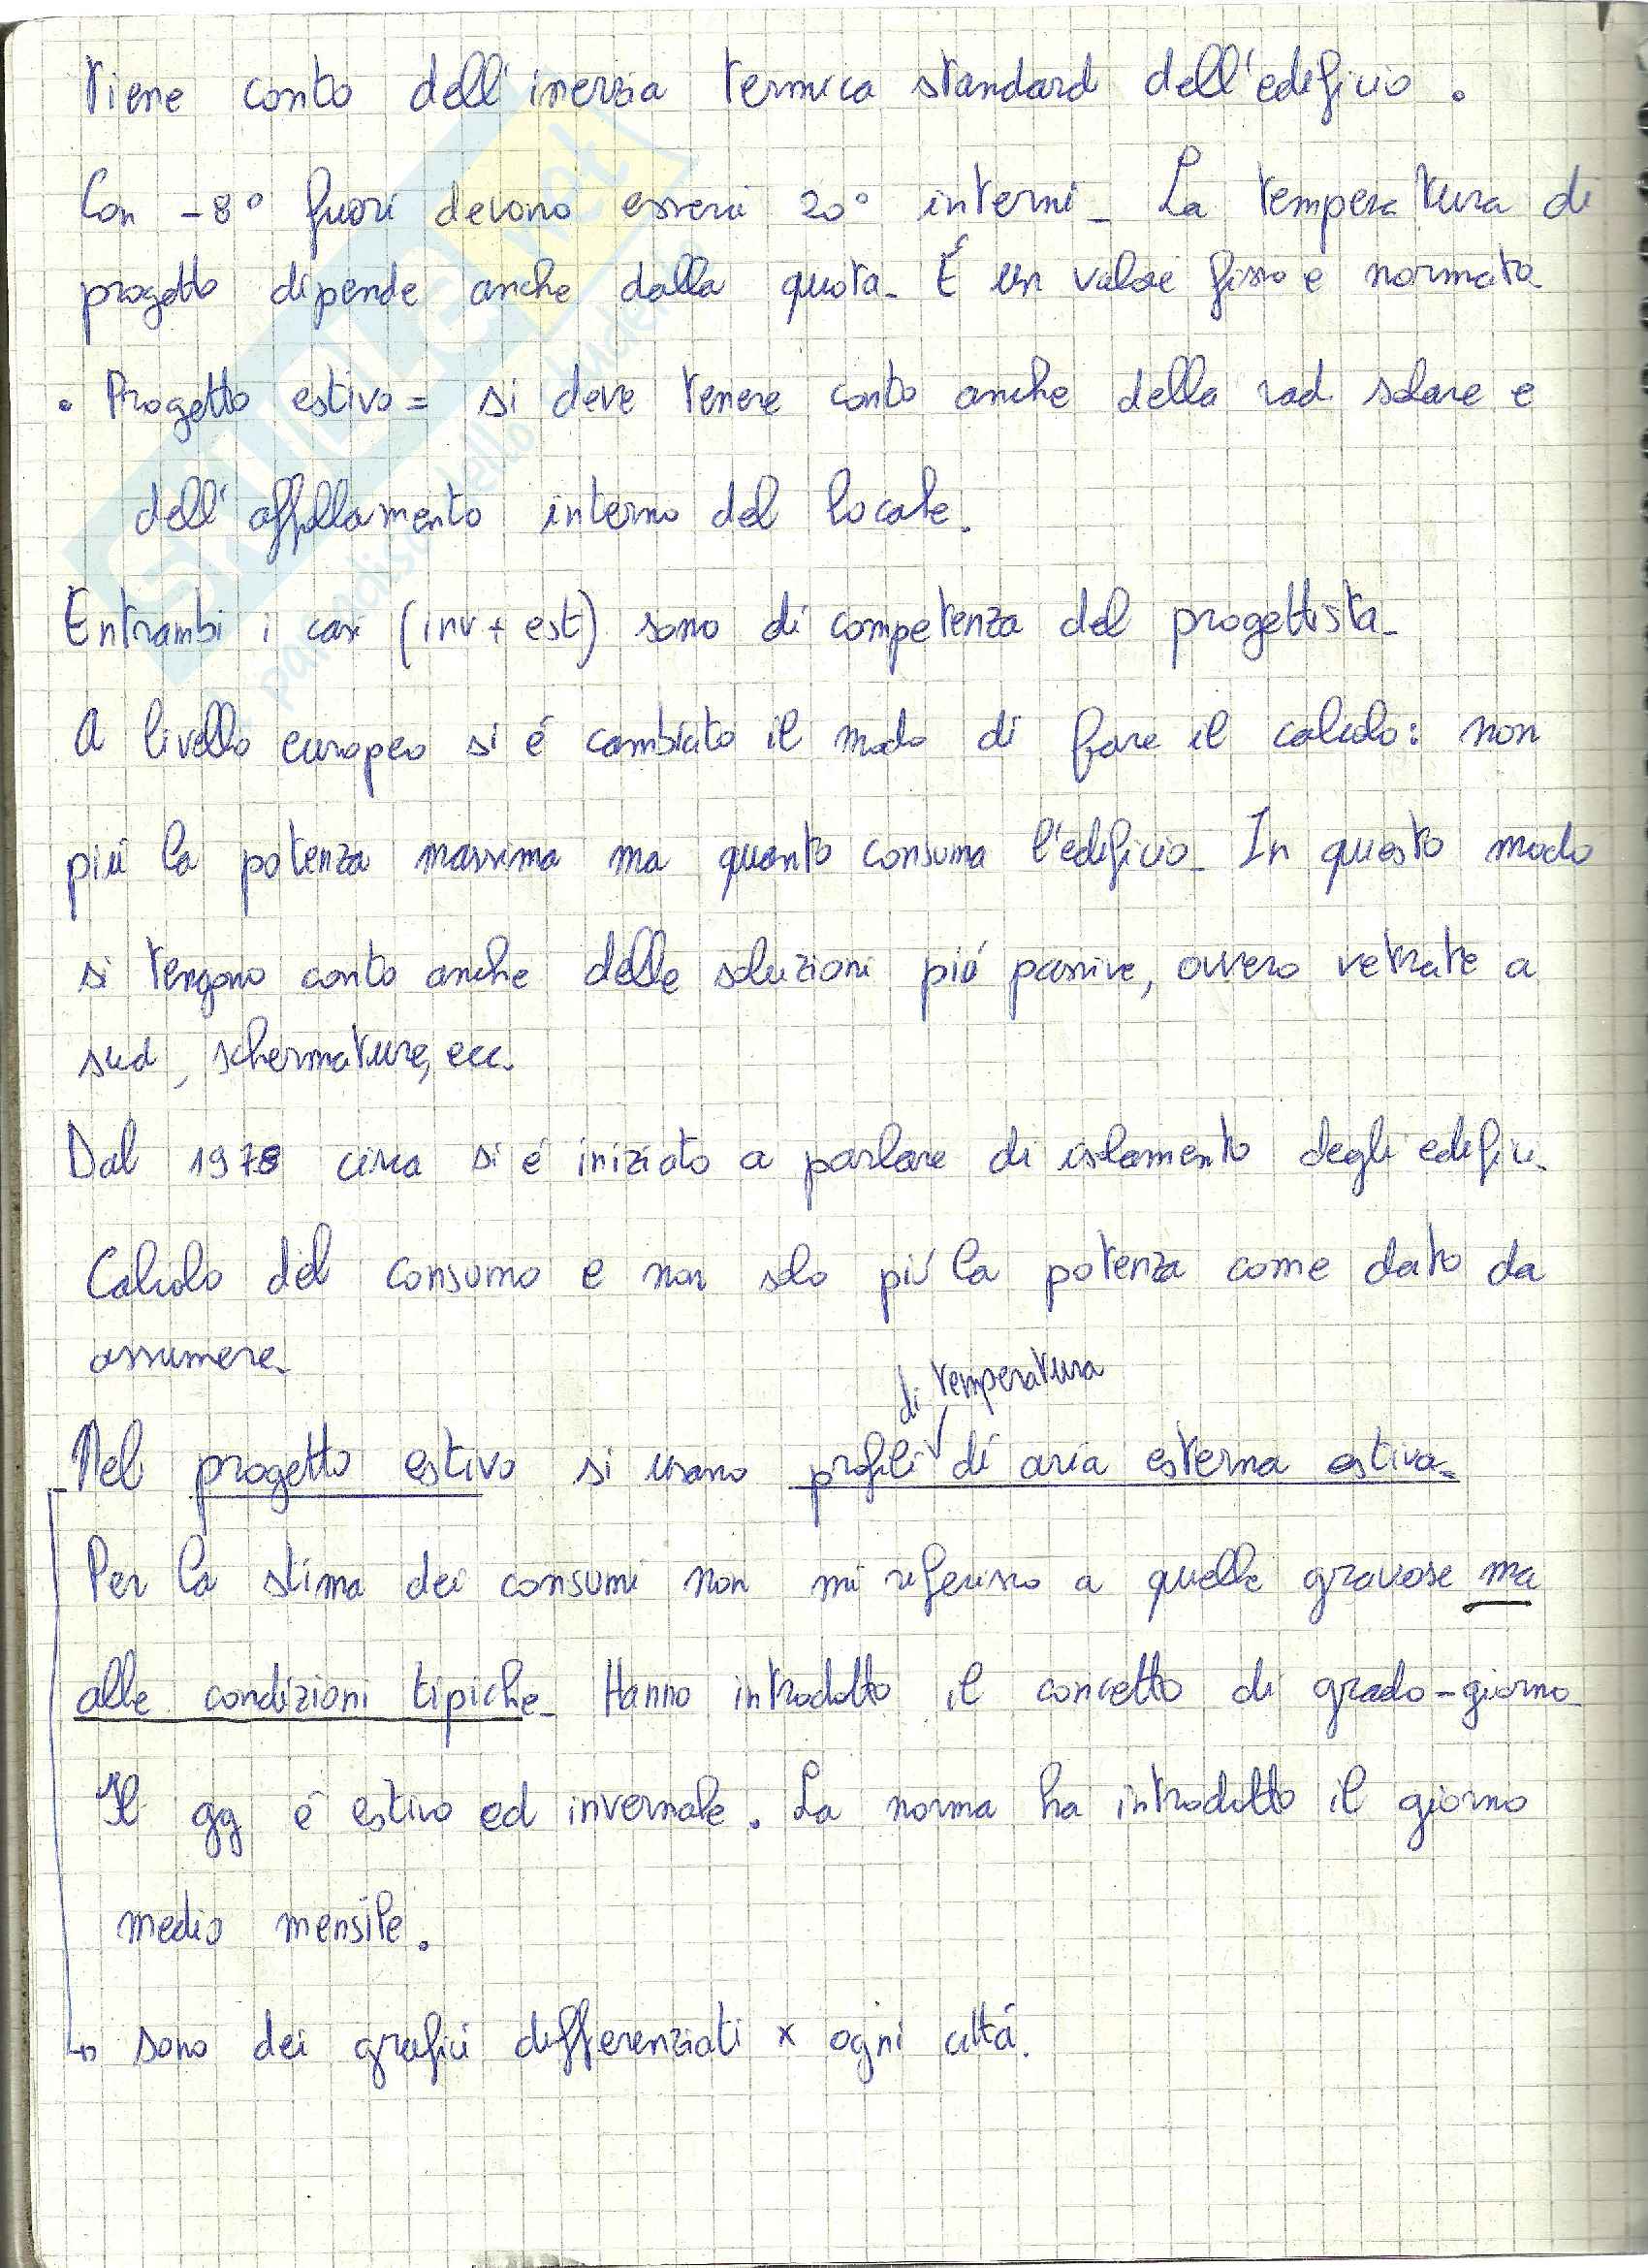 tiene conto dell'inerzia termica standard dell'edificio.
Con -8° fuori devono esserci 20° interni_ La temperatura di
progetto dipende anche dalla quota_ É un valore fisso e normato_
• Progetto estivo = si deve tenere conto anche della rad. solare e
dell'affollamento interno del locale.
Entrambi i casi (inv + est) sono di competenza del progettista_
A livello europeo si é cambiato il modo di fare il calcolo: non
piú la potenza massima ma quanto consuma l'edificio_ In questo modo
si tengono conto anche delle soluzioni piú passive, ovvero vetrate a
sud, schermature, ecc.
Dal 1978 circa si é iniziato a parlare di isolamento degli edifici_
Calcolo del consumo e non solo piú la potenza come dato da
assumere_
di temperatura
Nel progetto estivo si usano profili di aria esterna estiva_
Per la stima dei consumi non mi riferisco a quelle gravose ma
alle condizioni tipiche_ Hanno introdotto il concetto di grado-giorno_
Il gg é estivo ed invernale. La norma ha introdotto il giorno
medio mensile.
↳ sono dei grafici differenziati x ogni cittá.
SKUOLA.net
il paradiso dello studente